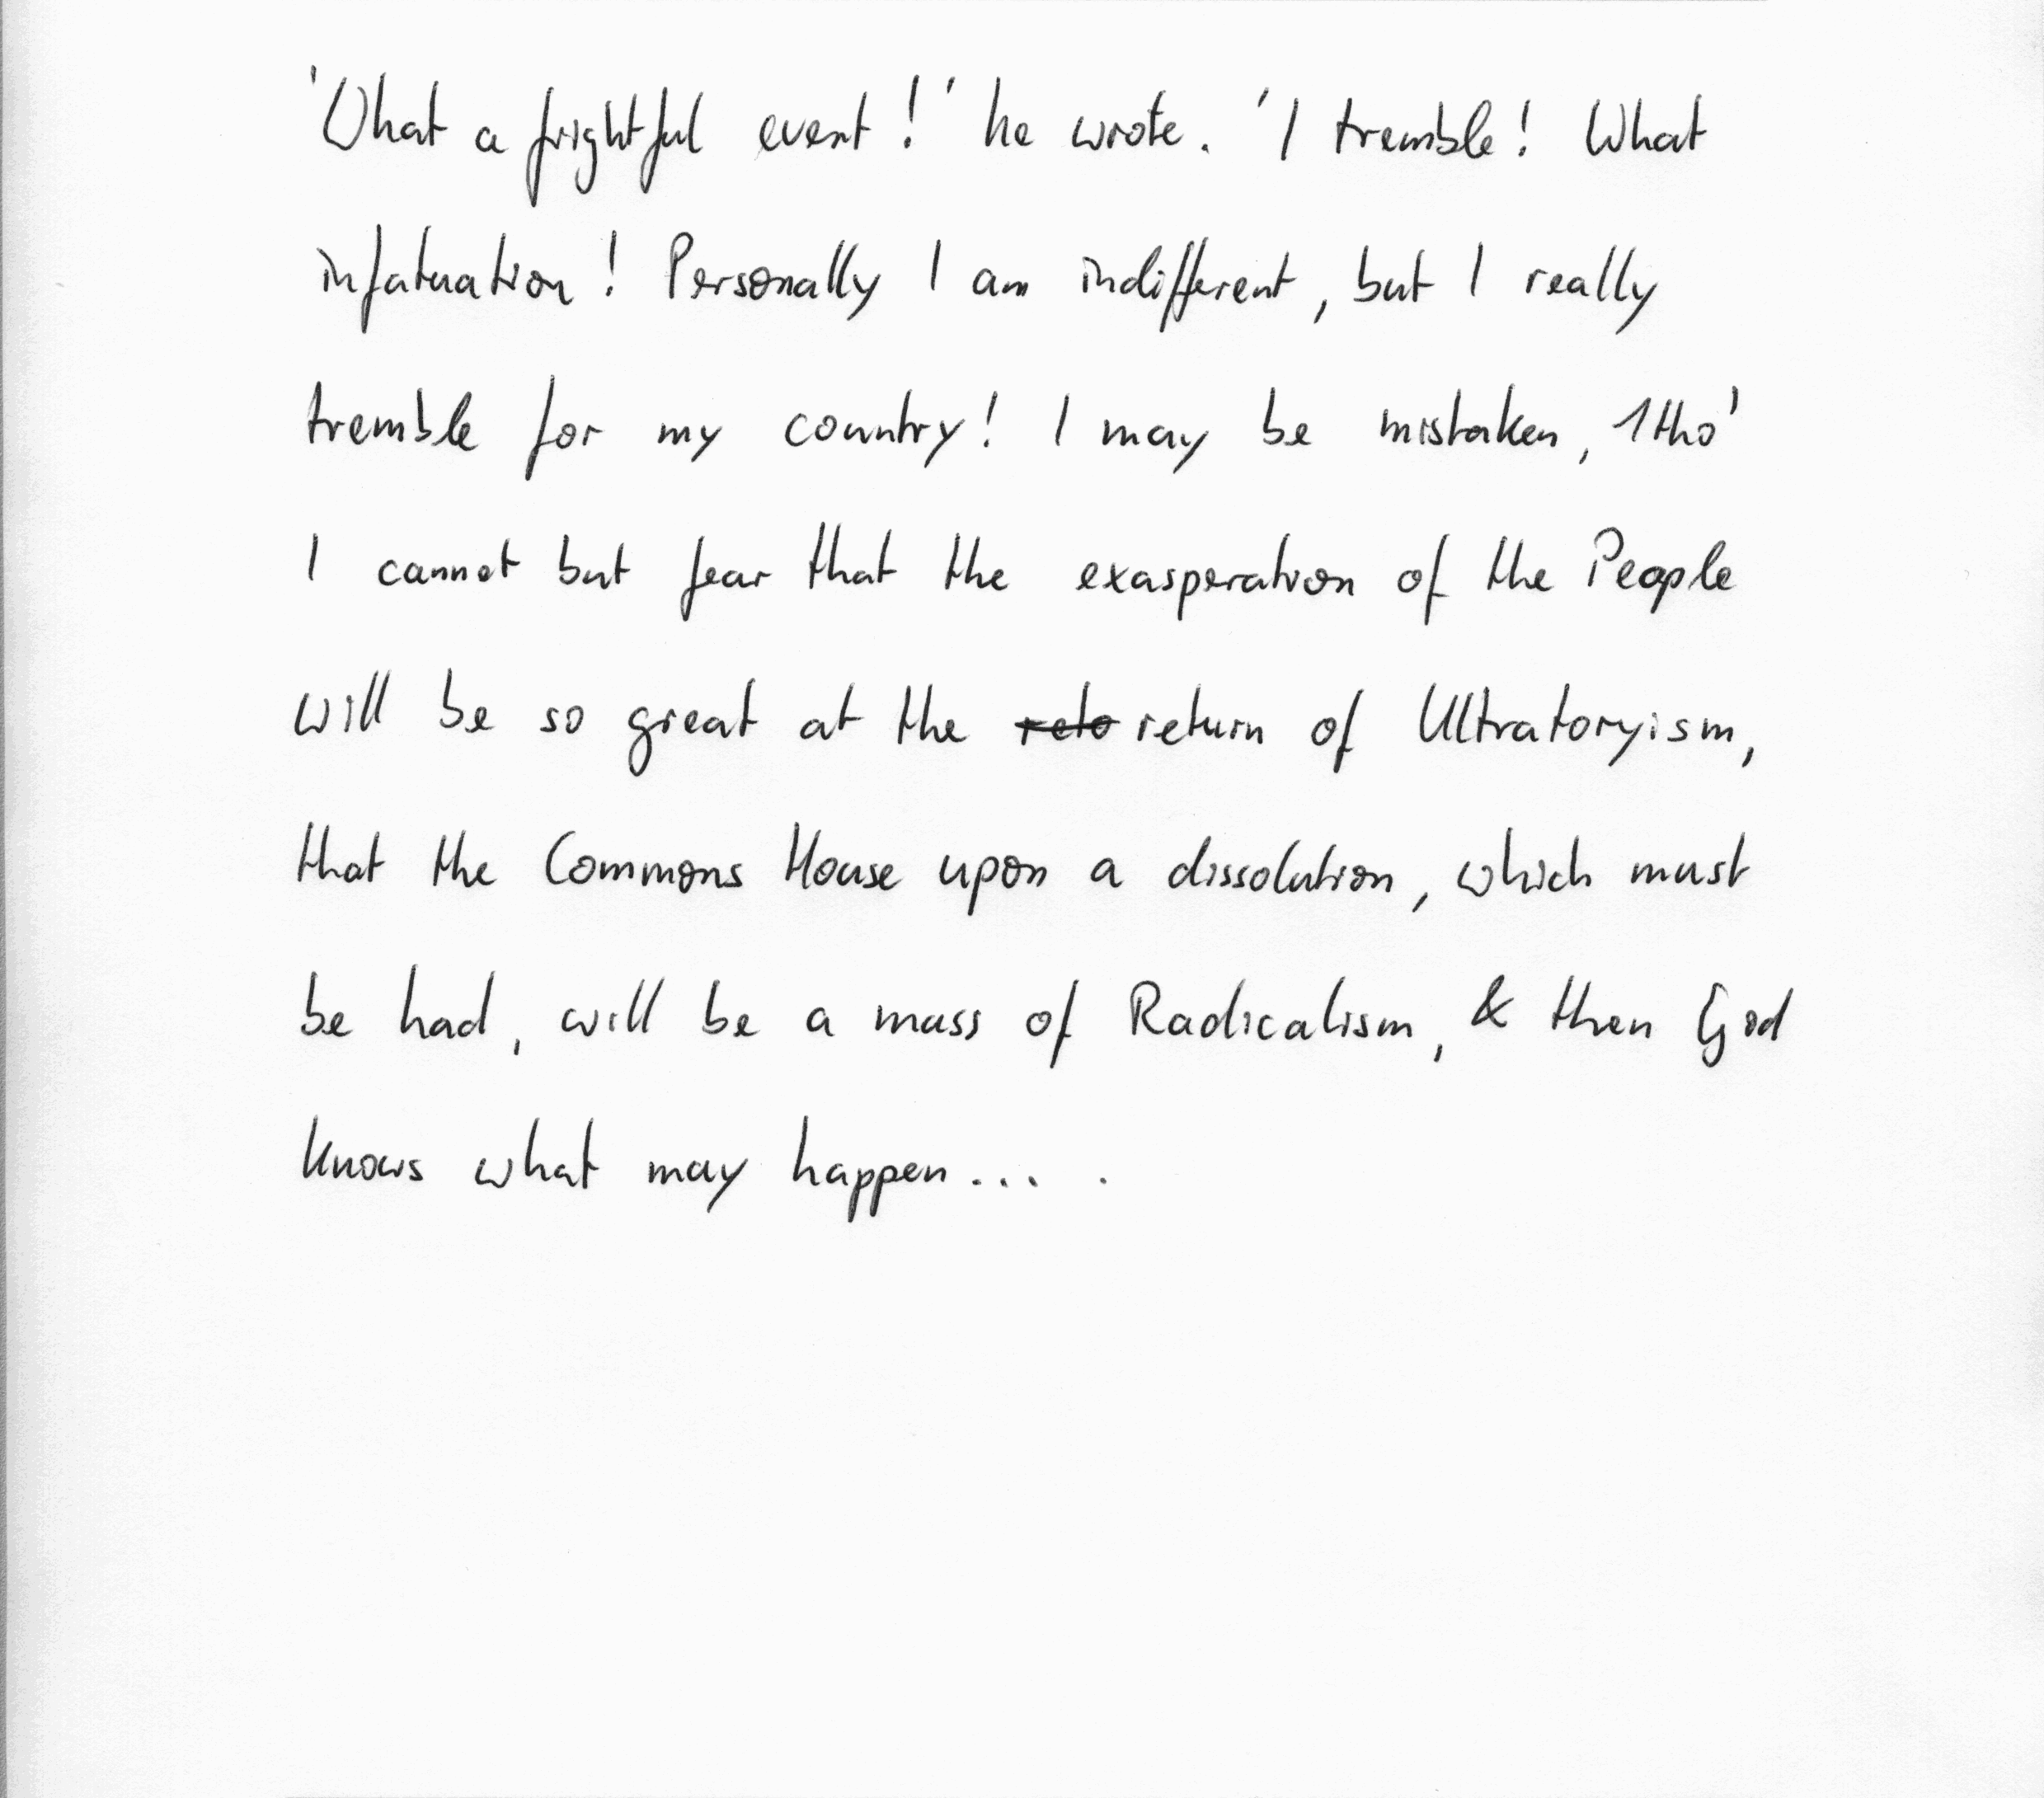 'What a frightful event!' he wrote. 'I tremble! What
infatuation! Personally I am indifferent, but I really
tremble for my country! I may be mistaken, 1tho'
I cannot but fear that the exasperation of the People
will be so great at the ~~reto~~ return of Ultratoryism,
that the Commons House upon a dissolution, which must
be had, will be a mass of Radicalism, & then God
knows what may happen... .